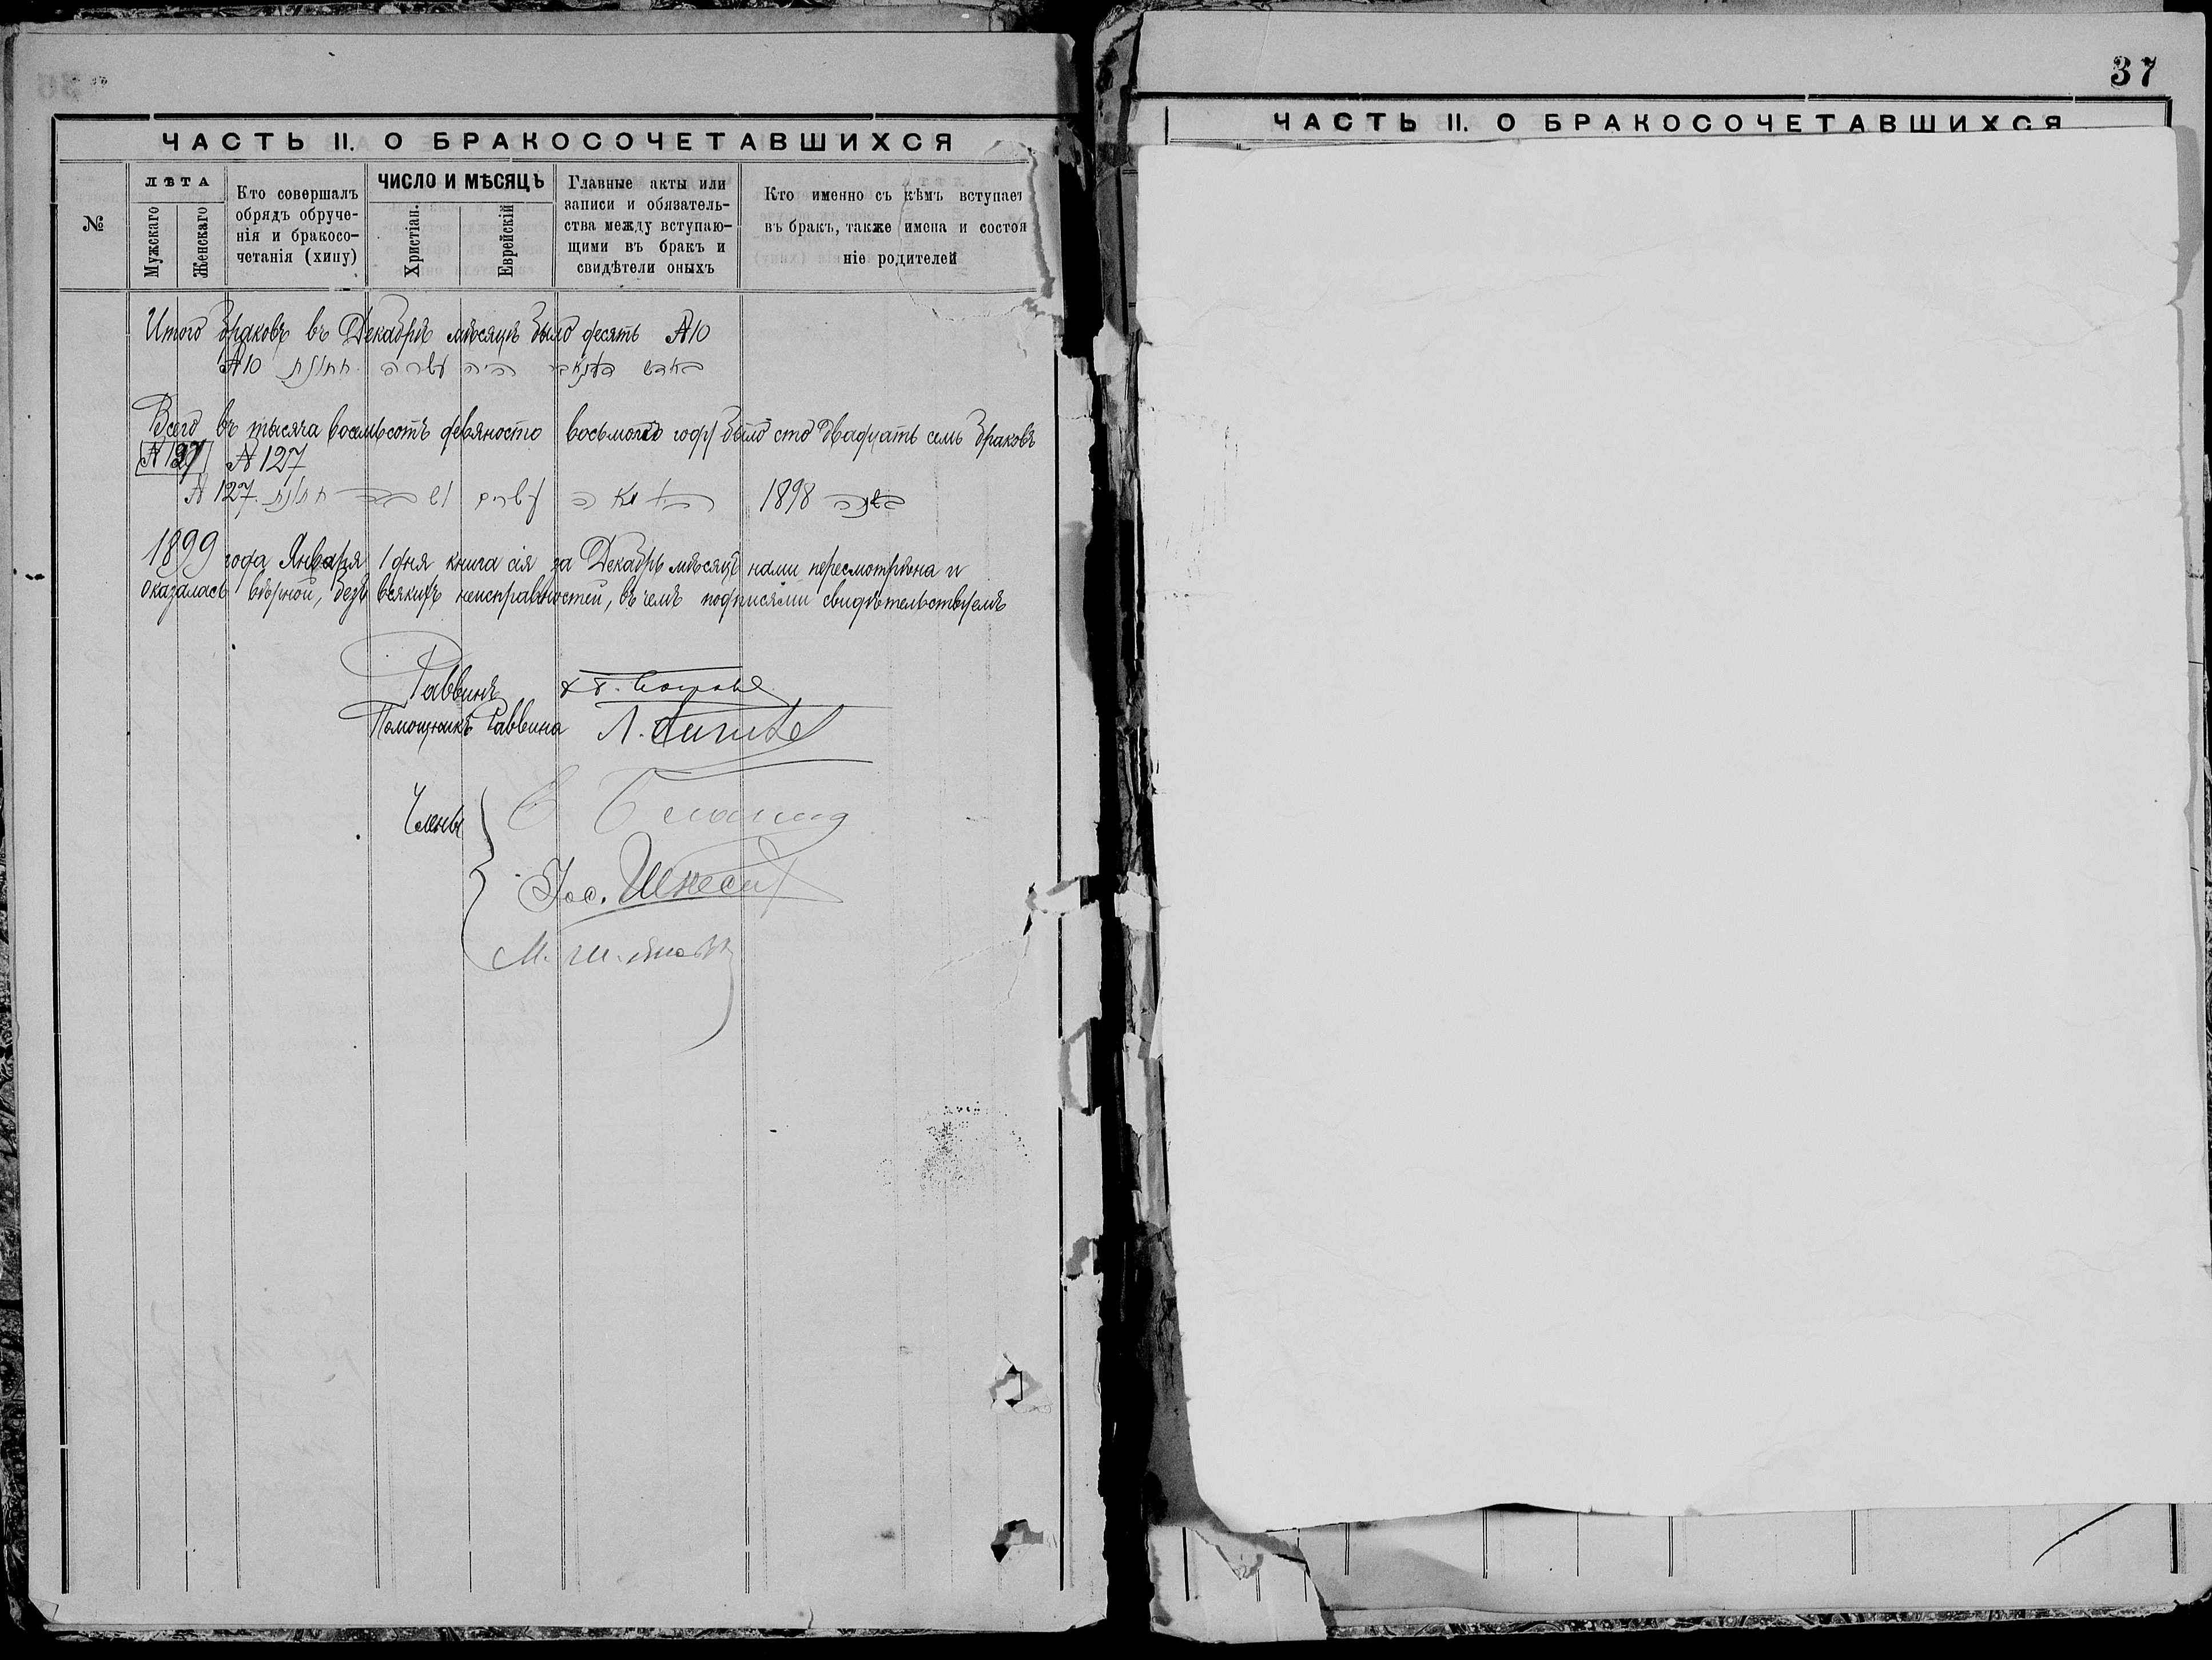 37
ЧАСТЬ II. О БРАКОСОЧЕТАВШИХСЯ
№
ЛѢТА
Мужскаго
Женскаго
Кто совершалъ
обрядъ обруче-
нія и бракосо-
четанія (хипу)
ЧИСЛО И МѢСЯЦЪ
Христіан.
Еврейскій
Главные акты или
записи и обязатель-
ства между вступаю-
щими въ бракъ и
свидѣтели оныхъ
Кто именно съ кѣмъ вступает
въ бракъ, также имена и состоя
ніе родителей
Итого браковъ въ Декабрѣ мѣсяцѣ было десять № 10
בחדש דעקאבר היה עשרה חתונת № 10
Всего въ тысяча восемьсотъ девяносто восьмого году было сто двадцать семь браковъ
№ 127 № 127
בשנה 1898 היו מאה עשרים ושבעה חתונת № 127
1899 года Января 1 дня книга сія за Декабрь мѣсяцъ нами пересмотрѣна и
оказалась вѣрной, безъ всякихъ неисправностей, въ чемъ подписями свидѣтельствуемъ
Раввинъ
Помощникъ Раввина Л.
Члены
Іос.
М.
ЧАСТЬ II. О БРАКОСОЧЕТАВШИХСЯ